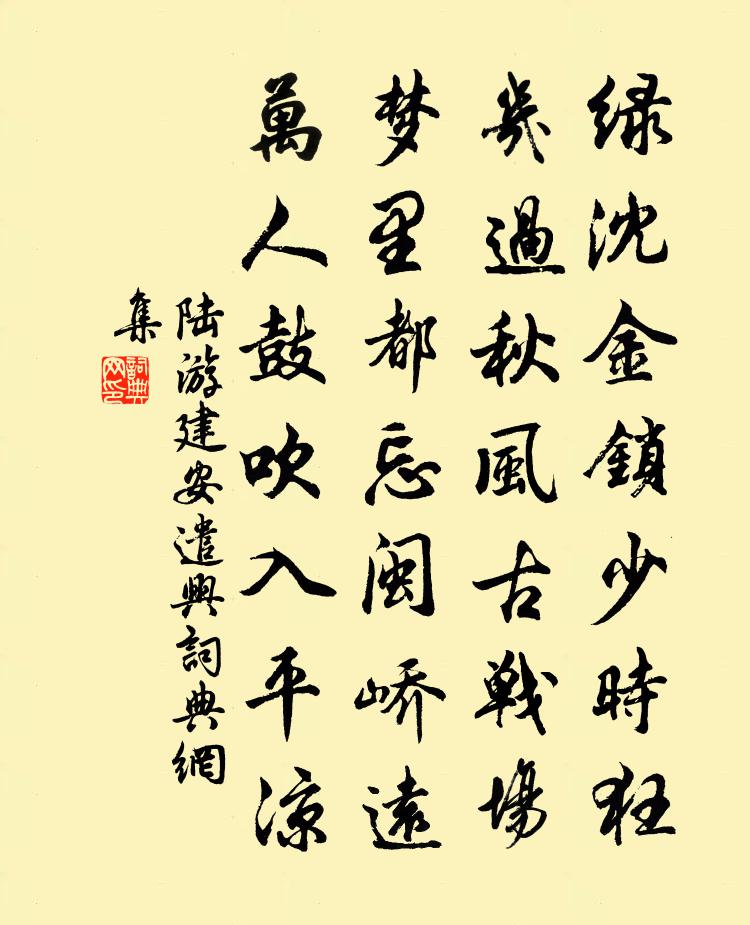 绿沈金鎖少時狂
幾過秋風古戰場
梦里都忘闽峤遠
萬人鼓吹入平涼
陆游建安遣興詞典網
集
詞典网印